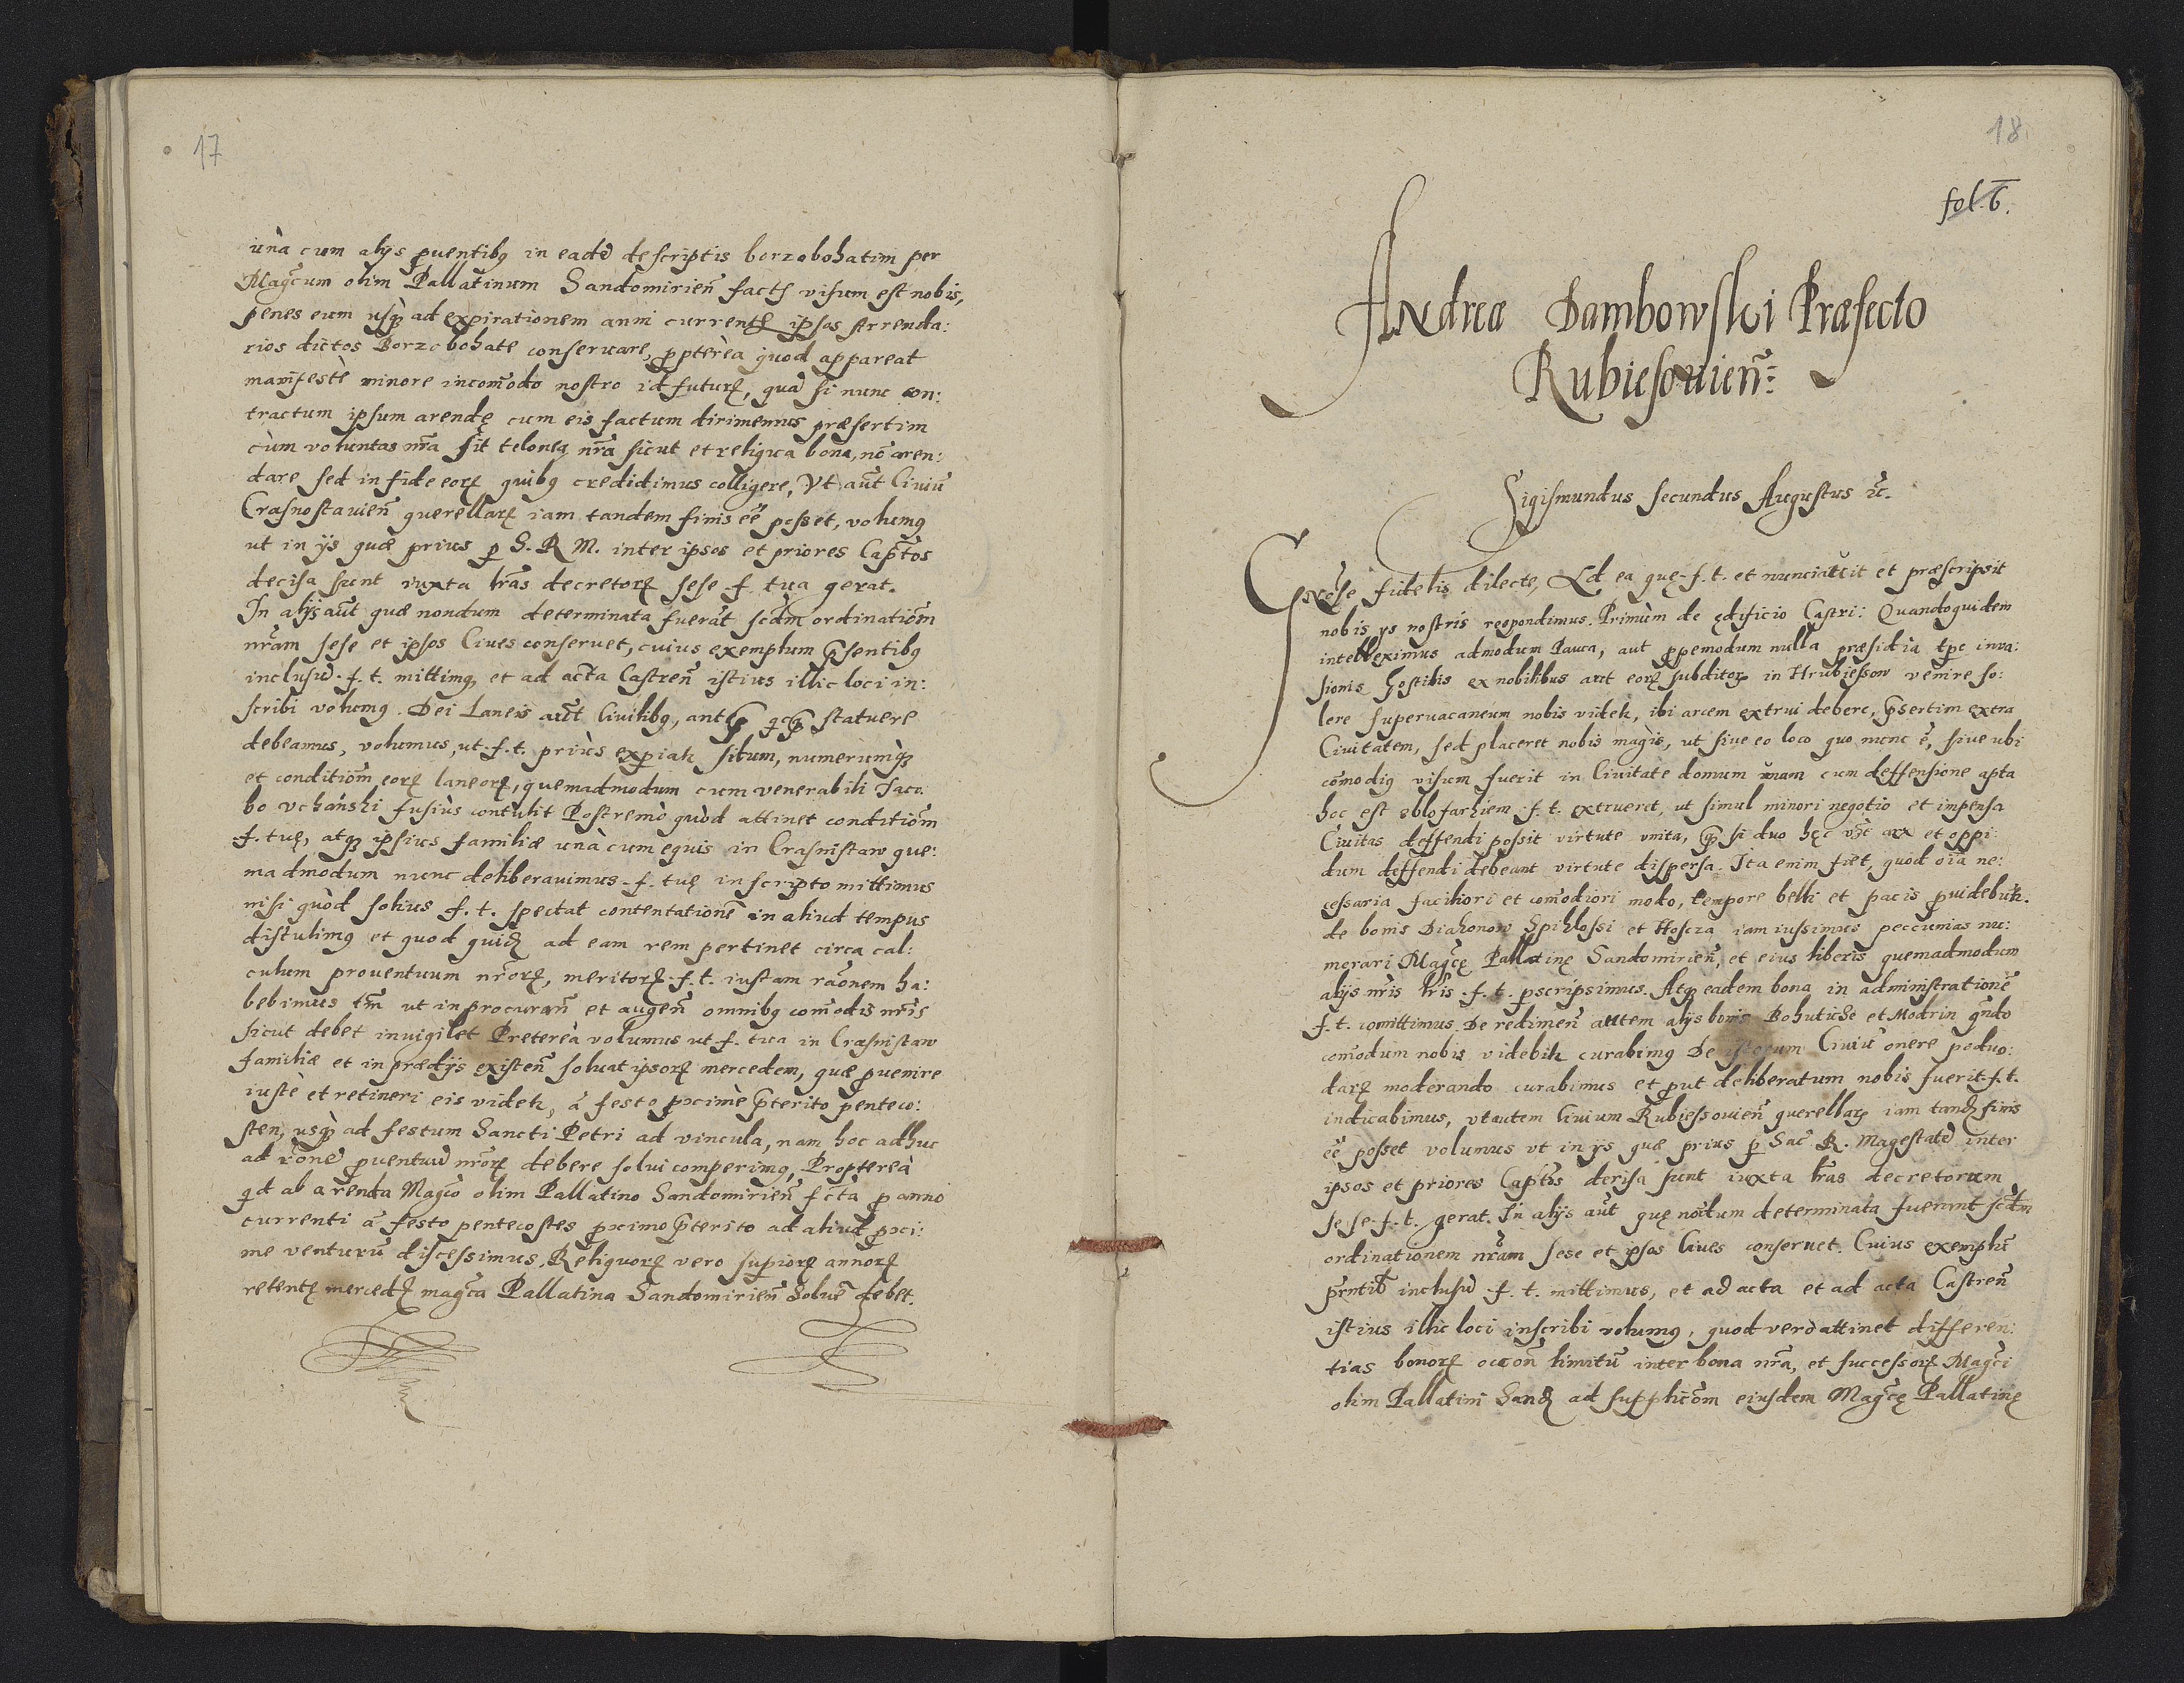 17
ùnà cum alijs ꝓuentibꝫ in eadē descriptis borzobohatim per
Magc̃um olim Pallatinum Sandomirien̄ factꝭ visum est nobis,
penes eum usqꝫ ad expirationem anni currentꝭ ipsos arrenda:
rios dictos Borzobohate conseruare, ꝓpterèa quod appareat
manifestè minore incom̄odo nostro id futurꝝ, quā si nunc con:
tractum ipsum arendę cum eis factum dirimemus præsertim
cùm voluntas nr̃a sit telonea nr̃a sicut et reliqua bona, nō aren:
dare sed in fide eorꝝ quibꝫ credidimus colligere, Vt aūt Ciuiū
Crasnostauien̄ querellarꝝ iam tandem finis eē posset, volumꝫ
ut in ijs quæ prius ꝑ S. R M. inter ipsos et priores Capt̃os
decisa sunt iuxta lr̃as decretorꝝ sese f. tua gerat.
In alijs aūt quæ nondum determinata fuerāt scdm̄ ordinatiōm
nr̃am sese et ipsos Ciues conseruet, cuius exemplum p̃sentibꝫ
inclusū f. t. mittimꝫ, et ad acta Castren̄ istius illic loci in:
scribi volumꝫ. Dei Laneis aūt Ciuilibꝫ, anteq̃ qcq̃ statuere
debeamus, volumus, ut f. t. priùs expiatꝛ situm, numerùmqꝫ
et conditiōm eorꝝ laneorꝝ, quemadmodum cum venerabili Jaco:
bo vchański fusiùs contulit Postremò quòd attinet conditiōm
f. tuę, atqꝫ ipsius familiæ unà cum equis in Crasnistaw que:
madmodum nunc deliberauimus f. tuę in scripto mittimus
nisi quòd solius f. t. spectat contentationē in aliud tempus
distulimꝫ et quod quidꝫ ad eam rem pertinet circa cal:
culum prouentuum nr̃orꝝ, meritorꝝ f. t. iustam rāonem ha:
bebimus tm̄ ut in procuran̄ et augen̄ omnibꝫ com̄odis nr̃is
sicut debet inuigilet Pretereà volumus ut f. tua in Crasnistaw
familiæ et in prædijs existen̄ soluat ipsorꝝ mercedem, quæ ꝓuenire
iustè et retineri eis videtꝛ, á festo ꝓximè p̃terito penteco:
sten, usqꝫ ad festum Sancti Petri ad vincula, nam hoc adhuc
ad rōnē ꝓuentuū nr̃orꝝ debere solui comperimꝫ, Proptereà
qd ab arenda Magc̃o olim Pallatino Sandomirien̄ fcta ꝓ anno
currenti á festo pentecostes ꝓximo p̃terito ad aliud ꝓxi:
me venturū discessimus. Reliquorꝝ vero supiorꝝ annorꝝ
retentꝭ mercedꝭ magc̃a Pallatina Sandomirien̄ soluē debet.
18
fol. 6.
Andreæ Dambowski Præfecto
Rubiesouien̄:
Sigismundus secundus Augustus ꝛc̄.
Gn̄ose fidelis dilecte, Ad ea quę f. t. et nunciauit et præscripsit
nobis ijs nostris respondimus. Primùm de ędificio Castri: Quandoquidem
intelleximus admodum Pauca, aut ꝓpemodum nulla præsidia tp̄e inua:
sionis hostilis ex nobilibus aut eorꝝ subditorꝝ in Hrubiessow venire so:
lere superuacaneum nobis videtꝛ, ibi arcem extrui debere, p̃sertim extra
Ciuitatem, sed placeret nobis magis, ut siue eo loco quo nunc ē, siue ubi
cōmodiꝫ visum fuerit in Ciuitate domum unam cum deffensione apta
hoc est oblofarhiem f. t. extrueret, ut simul minori negotio et impensa
Ciuitas deffendi possit virtute vnita, q̃ si duo hęc vꝫt arx et oppi:
dum deffendi debeant virtute dispersa. Ita enim fiet, quod oīa ne:
cessaria faciliori et com̄odiori modo, tempore belli et pacis ꝓuidebūtꝛ.
de bonis Diakonow Spiklossi et Hoscza iam iussimus peccunias nu:
merari Magc̃ę Pallatinę Sandomirien̄, et eius liberis quemadmodum
alijs nr̃is lr̃is f. t. ꝑscripsimus. Atqꝫ eadem bona in administrationē
f. t. com̄ittimus. De redimen̄ autem alijs bonis Bohutiche et Modrin qn̄do
com̄odum nobis videbitꝛ curabimꝫ De istorum Ciuiū onere poduo:
darꝝ moderando curabimus et ꝓut deliberatum nobis fuerit f. t.
indicabimus, vt autem Ciuium Rubiessouien̄ querellarꝝ iam tandꝫ finis
eē posset volumus vt in ijs quæ prius ꝑ Sac̄ R. Magestatē inter
ipsos et priores Capt̃os decisa sunt iuxta lr̃as decretorum
se se f. t. gerat. In alijs aūt quę nōdum determinata fuerunt scdm̄
ordinationem nr̃am sese et ipsos Ciues conseruet. Cuius exemplū
p̃ntibꝫ inclusū f. t. mittimus, et ad acta et ad acta Castren̄
istius illic loci inscribi volumꝫ, quod verò attinet differen:
tias bonorꝝ occōn̄ limitū inter bona nr̃a, et successorꝝ Magc̃i
olim Pallatini Sandꝫ ad supplicōm eiusdem Magc̃ę Pallatinę